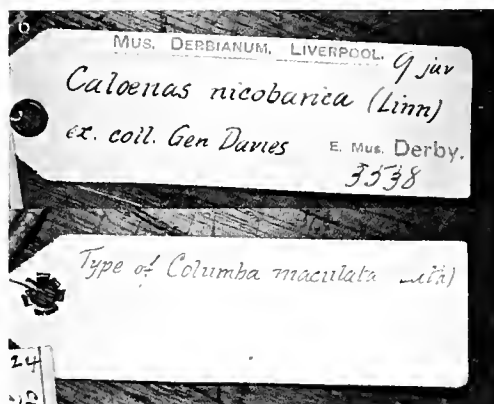 6
MUS. DERBIANUM, LIVERPOOL.
9 juv
Caloenas nicobarica (Linn)
ex. coll. Gen Davies
E. Mus. Derby.
3538
Type of Columba maculata
24